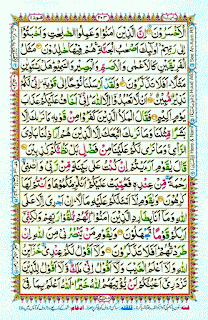 الْاَخْسَرُوْنَ اِنَّ الَّذِيْنَ اٰمَنُوْا وَعَمِلُوا الصّٰلِحٰتِ وَاَخْبَتُوْٓا
اِلٰى رَبِّهِمْ اُولٰٓئِكَ اَصْحٰبُ الْجَنَّةِ هُمْ فِيْهَا خٰلِدُوْنَ مَثَلُ
الْفَرِيْقَيْنِ كَالْاَعْمٰى وَالْاَصَمِّ وَالْبَصِيْرِ وَالسَّمِيْعِ هَلْ يَسْتَوِيٰنِ
مَثَلًا اَفَلَا تَذَكَّرُوْنَ وَلَقَدْ اَرْسَلْنَا نُوْحًا اِلٰى قَوْمِهٖٓ اِنِّيْ لَكُمْ
نَذِيْرٌ مُّبِيْنٌ اَنْ لَّا تَعْبُدُوْٓا اِلَّا اللّٰهَ اِنِّيْٓ اَخَافُ عَلَيْكُمْ عَذَابَ
يَوْمٍ اَلِيْمٍ فَقَالَ الْمَلَاُ الَّذِيْنَ كَفَرُوْا مِنْ قَوْمِهٖ مَا نَرٰىكَ اِلَّا
بَشَرًا مِّثْلَنَا وَمَا نَرٰىكَ اتَّبَعَكَ اِلَّا الَّذِيْنَ هُمْ اَرَاذِلُنَا بَادِيَ
الرَّاْيِ وَمَا نَرٰى لَكُمْ عَلَيْنَا مِنْ فَضْلٍ بَلْ نَظُنُّكُمْ كٰذِبِيْنَ
قَالَ يٰقَوْمِ اَرَءَيْتُمْ اِنْ كُنْتُ عَلٰى بَيِّنَةٍ مِّنْ رَّبِّيْ وَاٰتٰىنِيْ
رَحْمَةً مِّنْ عِنْدِهٖ فَعُمِّيَتْ عَلَيْكُمْ اَنُلْزِمُكُمُوْهَا وَاَنْتُمْ لَهَا
كٰرِهُوْنَ وَيٰقَوْمِ لَآ اَسْئَلُكُمْ عَلَيْهِ مَالًا اِنْ اَجْرِيَ اِلَّا عَلَى اللّٰهِ
وَمَآ اَنَا بِطَارِدِ الَّذِيْنَ اٰمَنُوْا اِنَّهُمْ مُّلٰقُوْا رَبِّهِمْ وَلٰكِنِّيْٓ
اَرٰىكُمْ قَوْمًا تَجْهَلُوْنَ وَيٰقَوْمِ مَنْ يَّنْصُرُنِيْ مِنَ اللّٰهِ اِنْ
طَرَدْتُّهُمْ اَفَلَا تَذَكَّرُوْنَ وَلَآ اَقُوْلُ لَكُمْ عِنْدِيْ خَزَآئِنُ
اللّٰهِ وَلَآ اَعْلَمُ الْغَيْبَ وَلَآ اَقُوْلُ اِنِّيْ مَلَكٌ وَّلَآ اَقُوْلُ لِلَّذِيْنَ
تَزْدَرِيْٓ اَعْيُنُكُمْ لَنْ يُّؤْتِيَهُمُ اللّٰهُ خَيْرًا اَللّٰهُ اَعْلَمُ بِمَا فِيْٓ